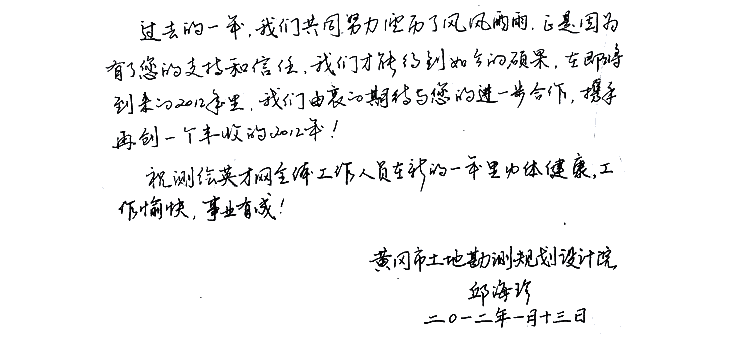 过去的一年,我们共同努力经历了风风雨雨.正是因为
有了您的支持和信任,我们才能得到如今的硕果,在即将
到来的2012年里,我们由衷的期待与您的进一步合作,携手
再创一个丰收的2012年!
祝测绘英才网全体工作人员在新的一年里身体健康,工
作愉快,事业有成!
黄冈市土地勘测规划设计院
邱海珍
二〇一二年一月十三日